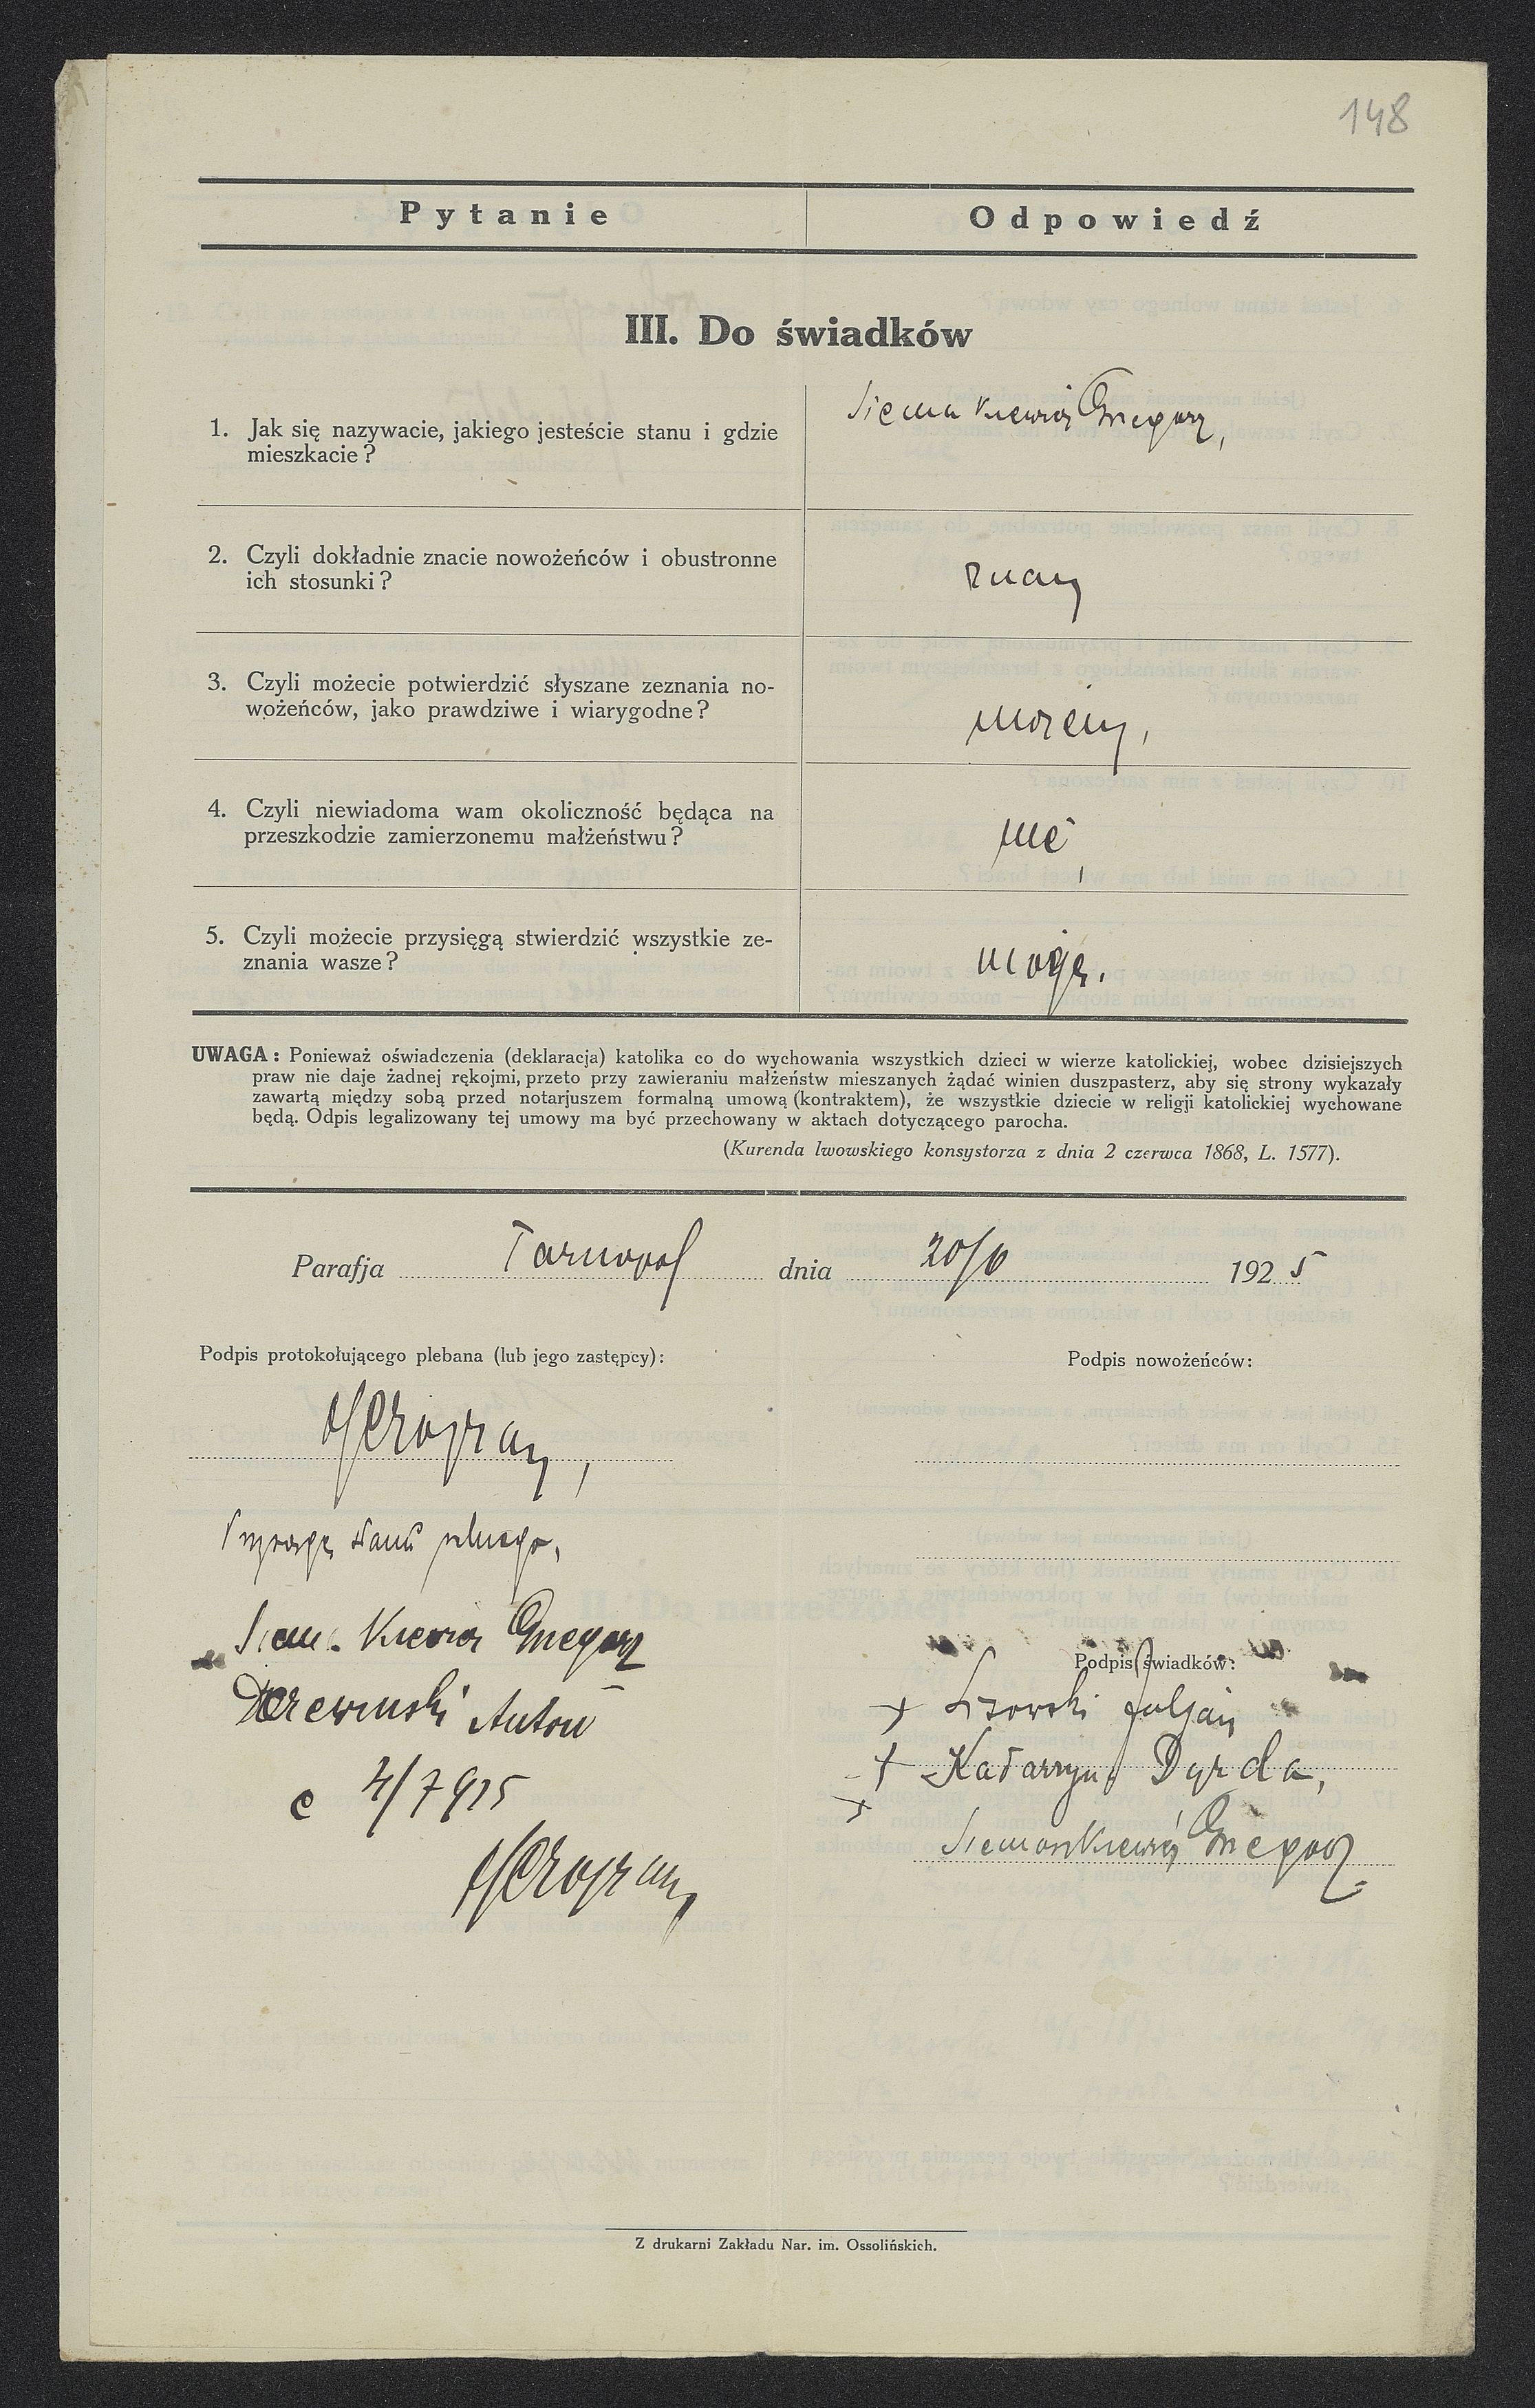 148
Pytanie
Odpowiedź
III. Do świadków
1. Jak się nazywacie, jakiego jesteście stanu i gdzie
mieszkacie?
Grzegorz,
2. Czyli dokładnie znacie nowożeńców i obustronne
ich stosunki?
znamy
3. Czyli możecie potwierdzić słyszane zeznania no-
wożeńców, jako prawdziwe i wiarygodne?
możemy,
4. Czyli niewiadoma wam okoliczność będąca na
przeszkodzie zamierzonemu małżeństwu?
nie,
5. Czyli możecie przysięgą stwierdzić wszystkie ze-
znania wasze?
mogę.
UWAGA: Ponieważ oświadczenia (deklaracja) katolika co do wychowania wszystkich dzieci w wierze katolickiej, wobec dzisiejszych
praw nie daje żadnej rękojmi, przeto przy zawieraniu małżeństw mieszanych żądać winien duszpasterz, aby się strony wykazały
zawartą między sobą przed notarjuszem formalną umową (kontraktem), że wszystkie dziecie w religji katolickiej wychowane
będą. Odpis legalizowany tej umowy ma być przechowany w aktach dotyczącego parocha.
(Kurenda lwowskiego konsystorza z dnia 2 czerwca 1868, L. 1577).
Parafja Tarnopol dnia 20/6 1925
Podpis protokołującego plebana (lub jego zastępcy):
Podpis nowożeńców:
Przysięga stanu wolnego,
Grzegorz
Antoni
4/7 925
Podpis świadków:
+ Lisowski Juljan
+ Katarzyna Dyrda,
+
Grzegorz
Z drukarni Zakładu Nar. im. Ossolińskich.